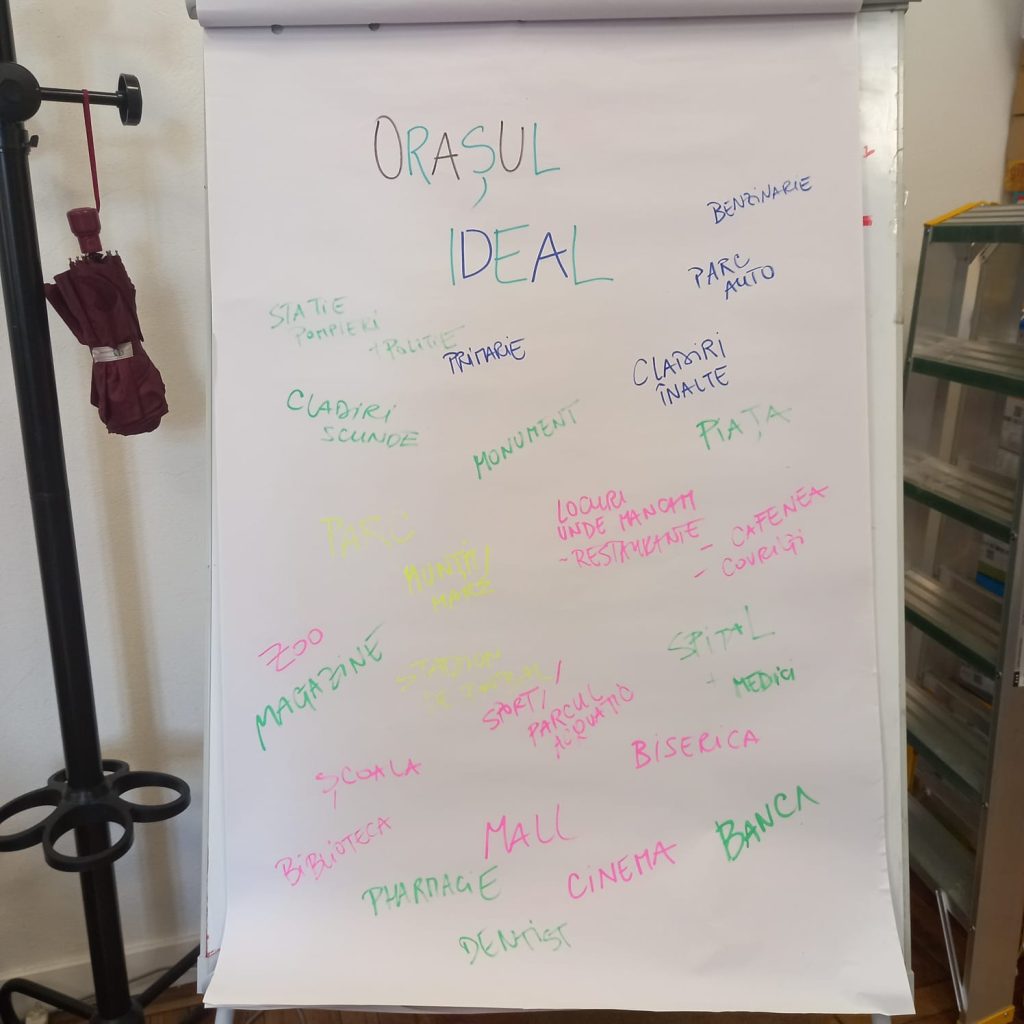 ORAȘUL
IDEAL
BENZINARIE
PARC
AUTO
STATIE
POMPIERI
+ POLITIE
PRIMARIE
CLADIRI
ÎNALTE
CLADIRI
SCUNDE
MONUMENT
PIAȚA
PARC
MUNȚII/
MARE
LOCURI
UNDE MANCAM
- RESTAURANTE
- CAFENEA
- COVRIGI
ZOO
MAGAZINE
STADION
DE FOTBAL
SPORT/
PARCUL
ACQUATIC
SPITAL
+ MEDICI
BISERICA
ȘCOALA
BIBLIOTECA
MALL
BANCA
PHARMACIE
CINEMA
DENTIST